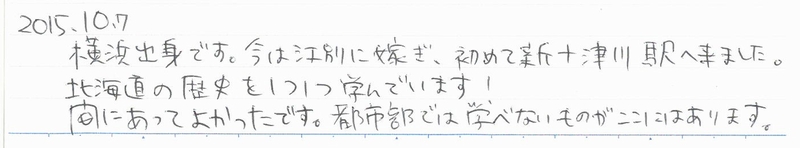 2015.10.7
横浜出身です。今は江別に嫁ぎ、初めて新十津川駅へ来ました。
北海道の歴史を1つ1つ学んでいます！
間にあってよかったです。都市部では学べないものがここにはあります。